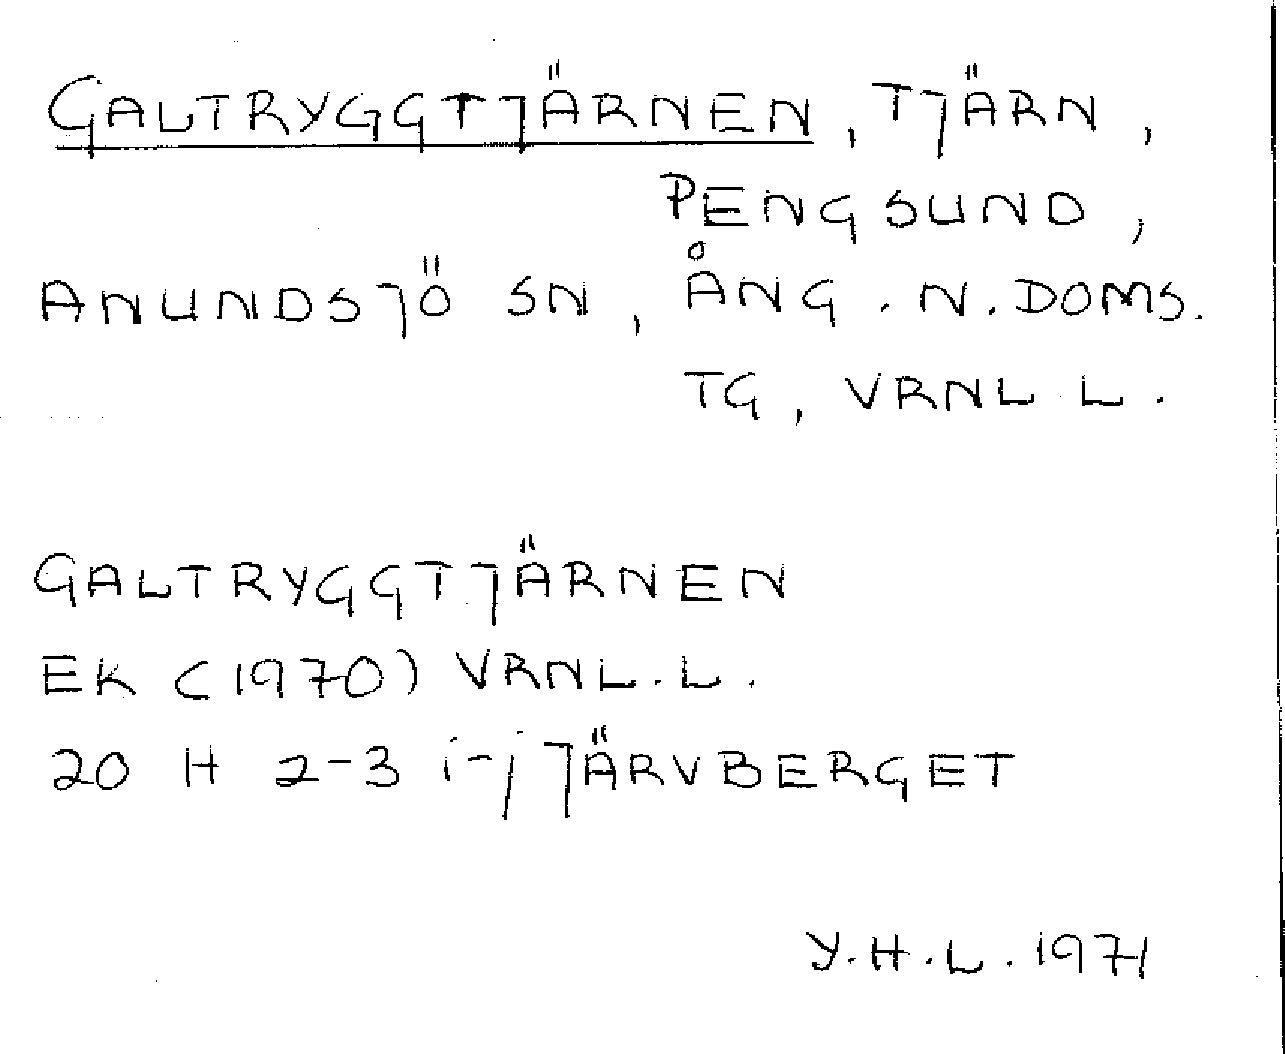 GALTRYGGTJÄRNEN, TJÄRN,
PENGSUND,
ANUNDSJÖ SN, ÅNG. N. DOMS.
TG, VRNL. L.
GALTRYGGTJÄRNEN
EK (1970) VRNL. L.
20 H 2-3 i-j JÄRVBERGET
Y.H.L. 1971